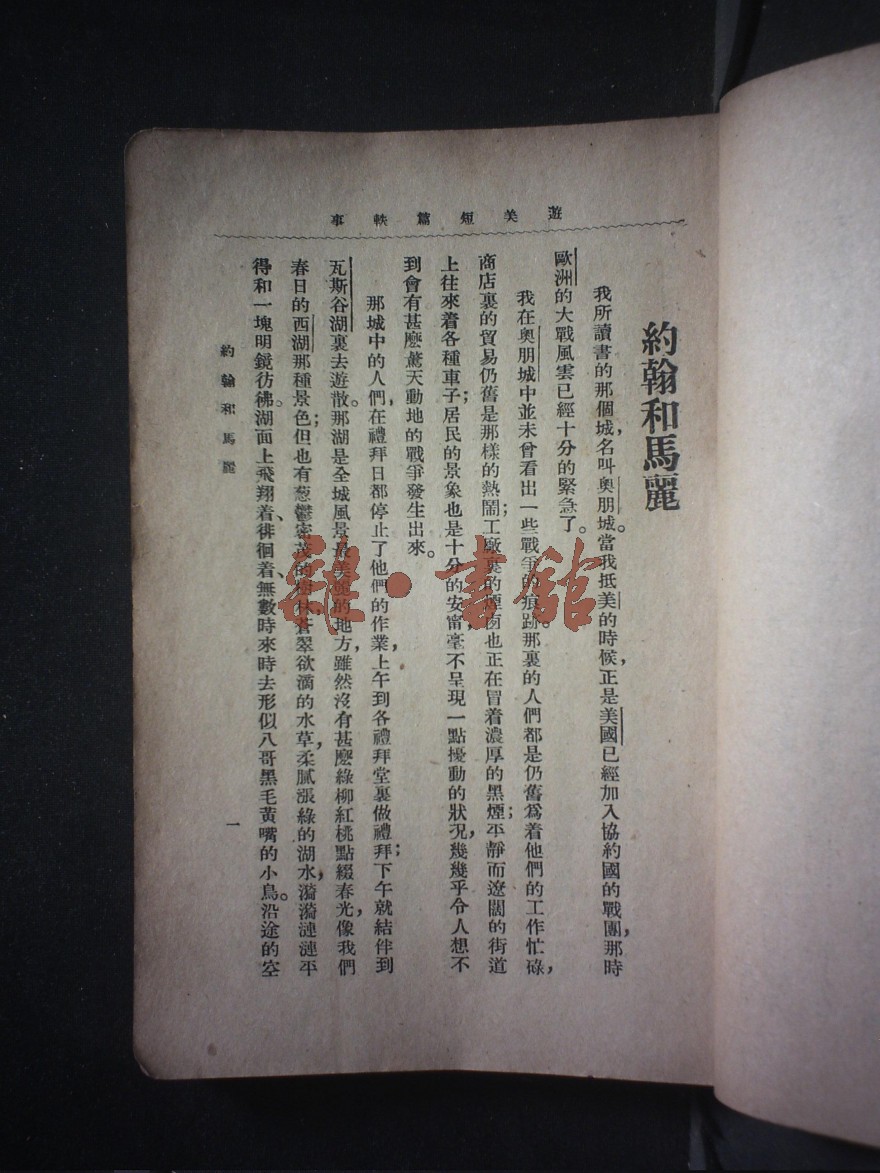 遊美短篇軼事
約翰和馬麗
我所讀書的那個城,名叫奧朋城。當我抵美的時候,正是美國已經加入協約國的戰團,那時
歐洲的大戰風雲已經十分的緊急了。
我在奧朋城中並未曾看出一些戰爭的痕跡。那裏的人們都是仍舊爲着他們的工作忙碌,
商店裏的貿易仍舊是那樣的熱鬧;工廠裏的煙囱也正在冒着濃厚的黑煙;平靜而遼闊的街道
上往來着各種車子;居民的景象也是十分的安甯,毫不呈現一點擾動的狀況,幾幾乎令人想不
到會有甚麽驚天動地的戰爭發生出來。
那城中的人們,在禮拜日都停止了他們的作業,上午到各禮拜堂裏做禮拜;下午就結伴到
瓦斯谷湖裏去遊散。那湖是全城風景最美麗的地方,雖然沒有甚麽綠柳紅桃點綴春光,像我們
春日的西湖那種景色;但也有葱鬱密茂的樹林,蒼翠欲滴的水草,柔膩漲綠的湖水,漪漪漣漣平
得和一塊明鏡彷彿。湖面上飛翔着、徘徊着、無數時來時去形似八哥黑毛黃嘴的小鳥。沿途的空
約翰和馬麗
一
雜·書館